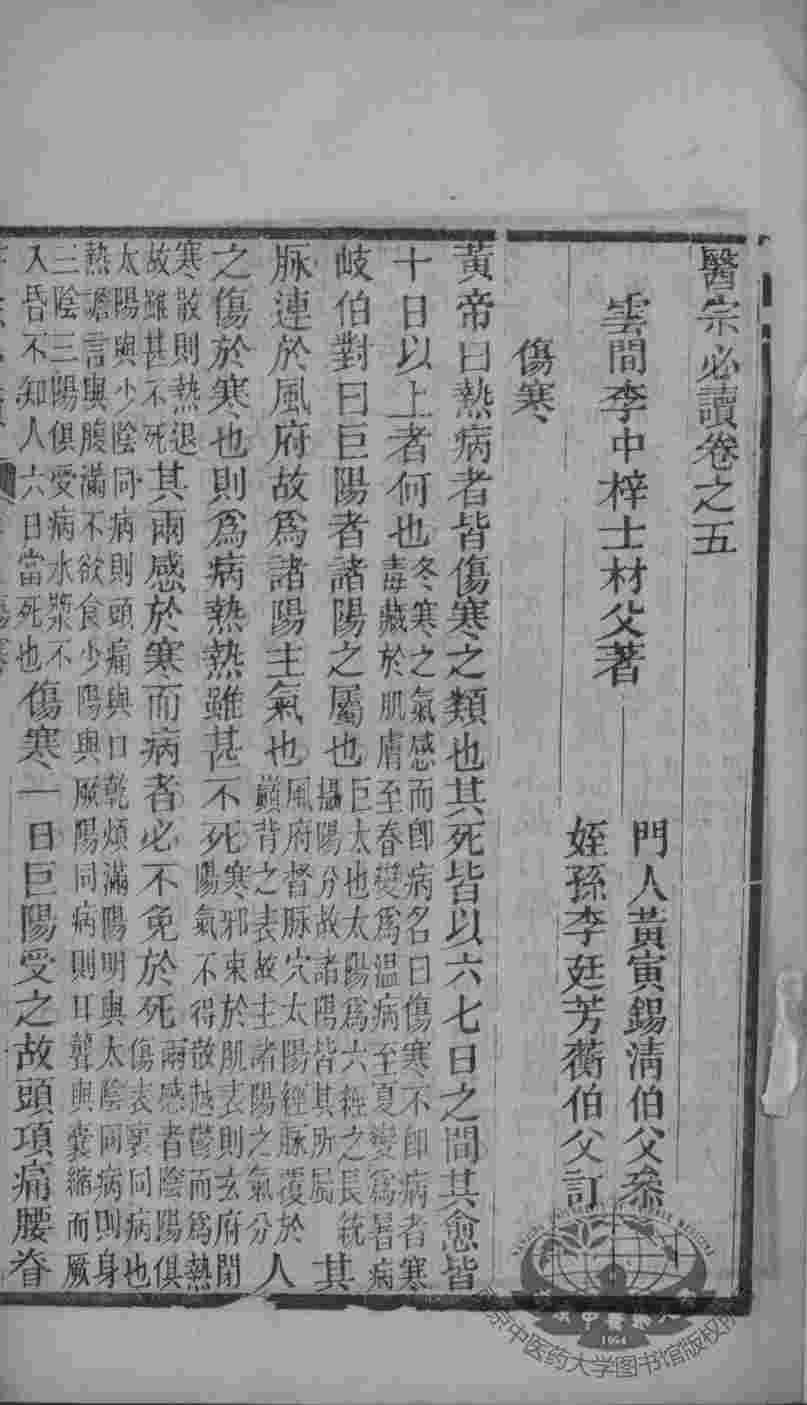 醫宗必讀卷之五
雲間李中梓士材父著
門人黃寅錫清伯父叅
姪孫李廷芳蘅伯父訂
傷寒
黃帝曰熱病者皆傷寒之類也其死皆以六七日之間其愈皆
十日以上者何也冬寒之氣感而卽病名曰傷寒不卽病者寒毒藏於肌膚至春變爲溫病至夏變爲暑病
岐伯對曰巨陽者諸陽之屬也巨太也太陽爲六經之長統攝陽分故諸陽皆其所屬其
脉連於風府故爲諸陽主氣也風府督脉穴太陽經脉覆於巔背之表故主諸陽之氣分人
之傷於寒也則爲病熱熱雖甚不死寒邪束於肌表則玄府閉陽氣不得散越鬱而爲熱
寒散則熱退故雖甚不死其兩感於寒而病者必不免於死兩感者陰陽俱傷表裏同病也
太陽與少陰同病則頭痛與口乾煩滿陽明與太陰同病則身熱譫言與腹滿不欲食少陽與厥陽同病則耳聾與囊縮而厥
三陰三陽俱受病水漿不入昏不知人六日當死也傷寒一日巨陽受之故頭項痛腰脊
南京中医药大学图书馆版权所
1954